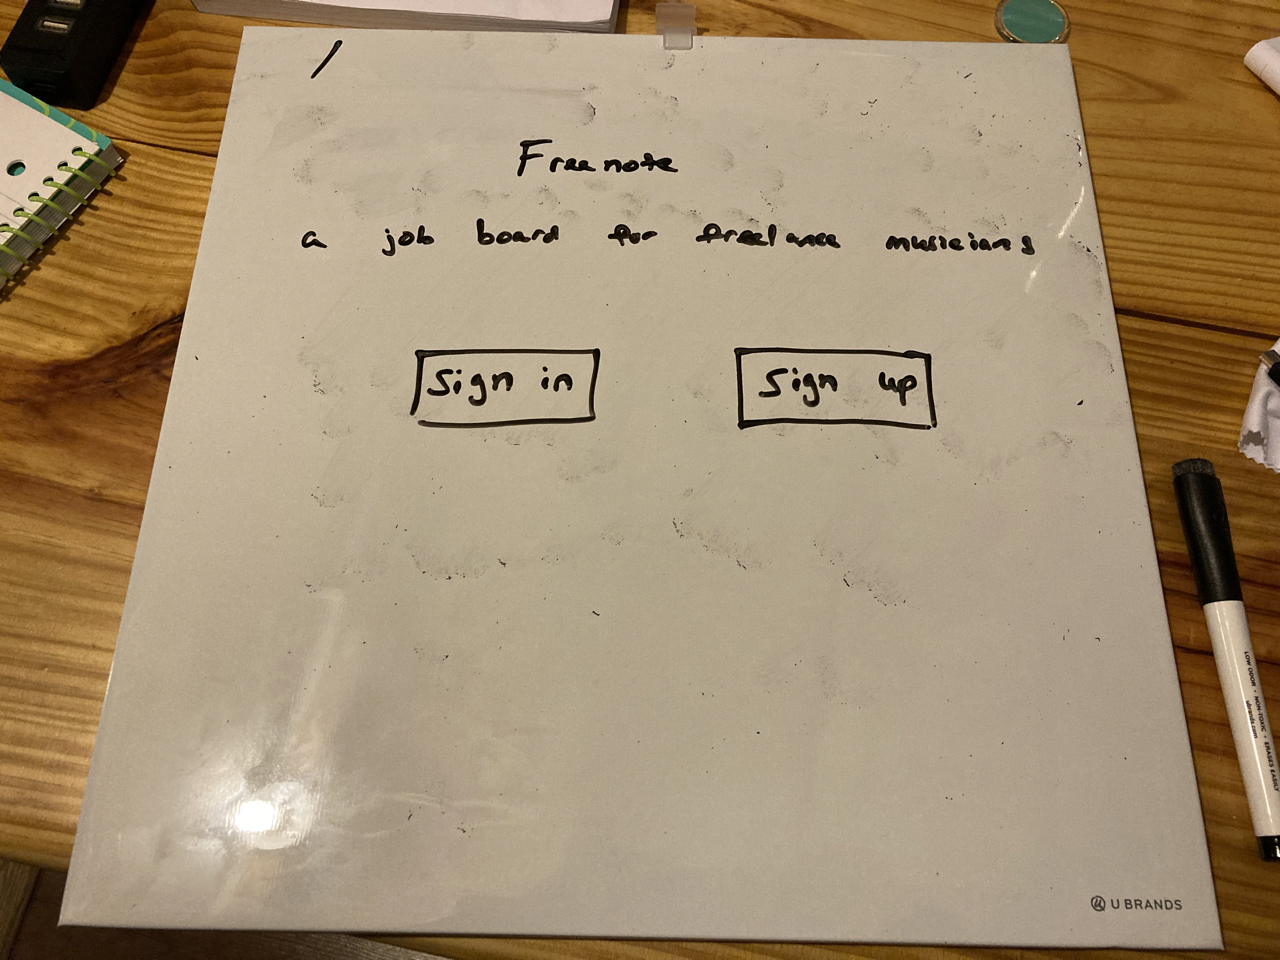 /
Freenote
a job board for freelance musicians
Sign in
Sign up
LOW ODOR • NON-TOXIC • ERASES EASILY
ubrands.com
U BRANDS